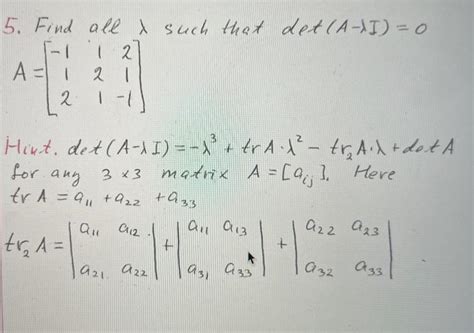 5. Find all λ such that det(A-λI) = 0
A = [-1 1 2
1 2 1
2 1 -1]
Hint. det(A-λI) = -λ³ + trA·λ² - tr₂A·λ + detA
for any 3×3 matrix A = [aᵢⱼ]. Here
tr A = a₁₁ + a₂₂ + a₃₃
tr₂ A = |a₁₁ a₁₂ a₂₁ a₂₂| + |a₁₁ a₁₃ a₃₁ a₃₃| + |a₂₂ a₂₃ a₃₂ a₃₃|